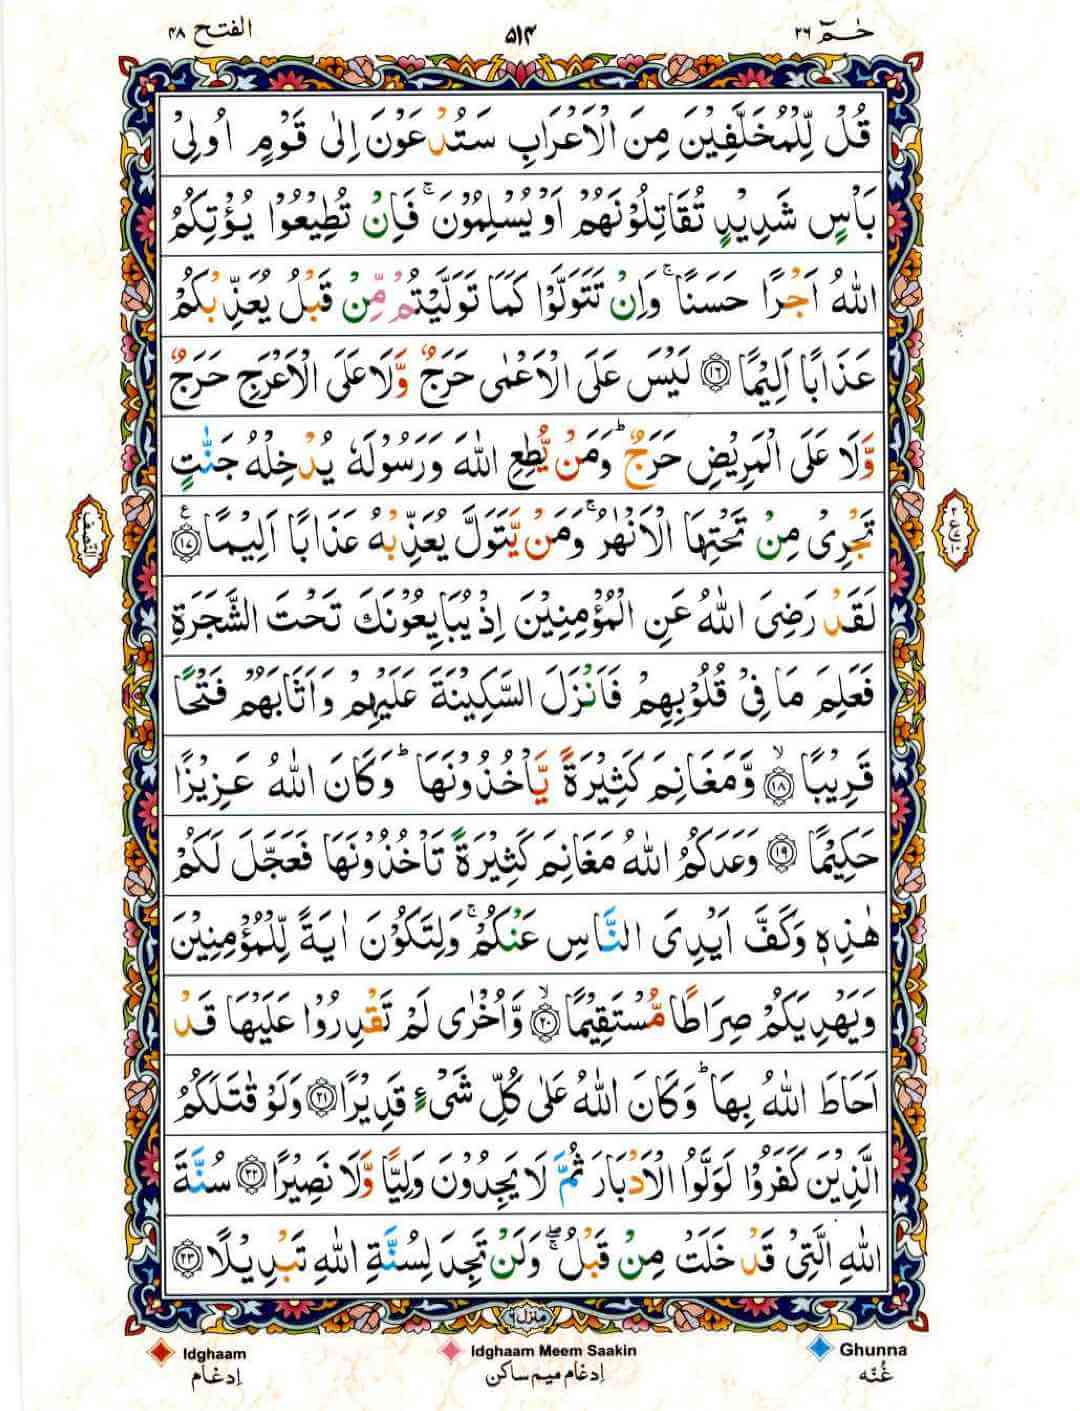 حٰمٓ ۲۶
۵۱۴
الفتح ۴۸
قُلْ لِّلْمُخَلَّفِيْنَ مِنَ الْاَعْرَابِ سَتُدْعَوْنَ اِلٰى قَوْمٍ اُولِىْ
بَاْسٍ شَدِيْدٍ تُقَاتِلُوْنَهُمْ اَوْ يُسْلِمُوْنَ ۚ فَاِنْ تُطِيْعُوْا يُؤْتِكُمُ
اللّٰهُ اَجْرًا حَسَنًا ۚ وَاِنْ تَتَوَلَّوْا كَمَا تَوَلَّيْتُمْ مِّنْ قَبْلُ يُعَذِّبْكُمْ
عَذَابًا اَلِيْمًا ۝۱۶ لَيْسَ عَلَى الْاَعْمٰى حَرَجٌ وَّلَا عَلَى الْاَعْرَجِ حَرَجٌ
وَّلَا عَلَى الْمَرِيْضِ حَرَجٌ ؕ وَمَنْ يُّطِعِ اللّٰهَ وَرَسُوْلَهٗ يُدْخِلْهُ جَنّٰتٍ
تَجْرِىْ مِنْ تَحْتِهَا الْاَنْهٰرُ ۚ وَمَنْ يَّتَوَلَّ يُعَذِّبْهُ عَذَابًا اَلِيْمًا ۝۱۷ ع
لَقَدْ رَضِىَ اللّٰهُ عَنِ الْمُؤْمِنِيْنَ اِذْ يُبَايِعُوْنَكَ تَحْتَ الشَّجَرَةِ
فَعَلِمَ مَا فِىْ قُلُوْبِهِمْ فَاَنْزَلَ السَّكِيْنَةَ عَلَيْهِمْ وَاَثَابَهُمْ فَتْحًا
قَرِيْبًا ۝۱۸ۙ وَّمَغَانِمَ كَثِيْرَةً يَّاْخُذُوْنَهَا ؕ وَكَانَ اللّٰهُ عَزِيْزًا
حَكِيْمًا ۝۱۹ وَعَدَكُمُ اللّٰهُ مَغَانِمَ كَثِيْرَةً تَاْخُذُوْنَهَا فَعَجَّلَ لَكُمْ
هٰذِهٖ وَكَفَّ اَيْدِىَ النَّاسِ عَنْكُمْ ۚ وَلِتَكُوْنَ اٰيَةً لِّلْمُؤْمِنِيْنَ
وَيَهْدِيَكُمْ صِرَاطًا مُّسْتَقِيْمًا ۝۲۰ۙ وَّاُخْرٰى لَمْ تَقْدِرُوْا عَلَيْهَا قَدْ
اَحَاطَ اللّٰهُ بِهَا ؕ وَكَانَ اللّٰهُ عَلٰى كُلِّ شَىْءٍ قَدِيْرًا ۝۲۱ وَلَوْ قٰتَلَكُمُ
الَّذِيْنَ كَفَرُوْا لَوَلَّوُا الْاَدْبَارَ ثُمَّ لَا يَجِدُوْنَ وَلِيًّا وَّلَا نَصِيْرًا ۝۲۲ سُنَّةَ
اللّٰهِ الَّتِىْ قَدْ خَلَتْ مِنْ قَبْلُ ۖۚ وَلَنْ تَجِدَ لِسُنَّةِ اللّٰهِ تَبْدِيْلًا ۝۲۳
النصف
۲
ع۷
۱۰
منزل ۶
Idghaam
Idghaam Meem Saakin
Ghunna
اِدغَام
اِدغَام میم ساکن
غُنّه